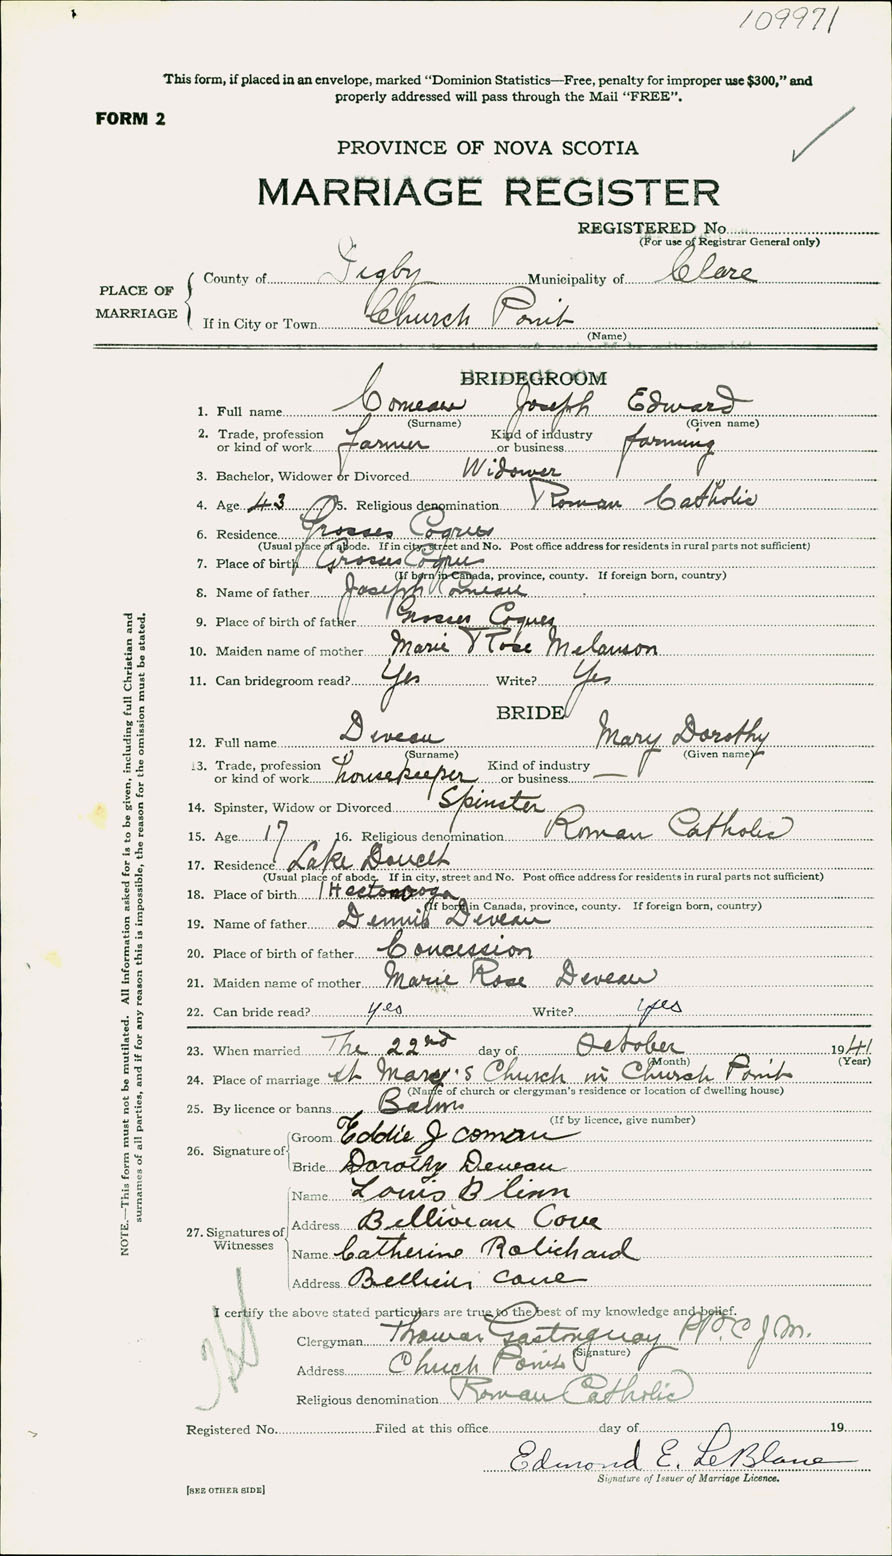 109971
This form, if placed in an envelope, marked "Dominion Statistics—Free, penalty for improper use $300," and
properly addressed will pass through the Mail "FREE".
FORM 2
PROVINCE OF NOVA SCOTIA
MARRIAGE REGISTER
REGISTERED No.
(For use of Registrar General only)
PLACE OF MARRIAGE
County of Digby Municipality of Clare
If in City or Town Church Point
(Name)
BRIDEGROOM
1. Full name Comeau Joseph Edward
(Surname) (Given name)
2. Trade, profession or kind of work farmer Kind of industry or business farming
3. Bachelor, Widower or Divorced Widower
4. Age 43 5. Religious denomination Roman Catholic
6. Residence Grosses Coques
(Usual place of abode. If in city, street and No. Post office address for residents in rural parts not sufficient)
7. Place of birth Grosses Coques
(If born in Canada, province, county. If foreign born, country)
8. Name of father Joseph Comeau
9. Place of birth of father Grosses Coques
10. Maiden name of mother Marie Rose Melanson
11. Can bridegroom read? Yes Write? Yes
BRIDE
12. Full name Deveau Mary Dorothy
(Surname) (Given name)
13. Trade, profession or kind of work housekeeper Kind of industry or business —
14. Spinster, Widow or Divorced Spinster
15. Age 17 16. Religious denomination Roman Catholic
17. Residence Lake Doucet
(Usual place of abode. If in city, street and No. Post office address for residents in rural parts not sufficient)
18. Place of birth Hectanooga
(If born in Canada, province, county. If foreign born, country)
19. Name of father Dennis Deveau
20. Place of birth of father Concession
21. Maiden name of mother Marie Rose Deveau
22. Can bride read? yes Write? yes
23. When married The 22nd day of October 1941
(Month) (Year)
24. Place of marriage St Mary's Church in Church Point
(Name of church or clergyman's residence or location of dwelling house)
25. By licence or banns Banns
(If by licence, give number)
26. Signature of Groom Eddie J comau
Bride Dorothy Deveau
27. Signatures of Witnesses
Name Louis Blinn
Address Belliveau Cove
Name Catherine Robichard
Address cove
I certify the above stated particulars are true to the best of my knowledge and belief.
Clergyman Thomas Gastonguay P.P. C.J.M.
(Signature)
Address Church Point
Religious denomination Roman Catholic
Registered No. Filed at this office day of 19
Edmond E. LeBlanc
Signature of Issuer of Marriage Licence.
[SEE OTHER SIDE]
NOTE.—This form must not be mutilated. All information asked for is to be given, including full Christian and
surnames of all parties, and if for any reason this is impossible, the reason for the omission must be stated.